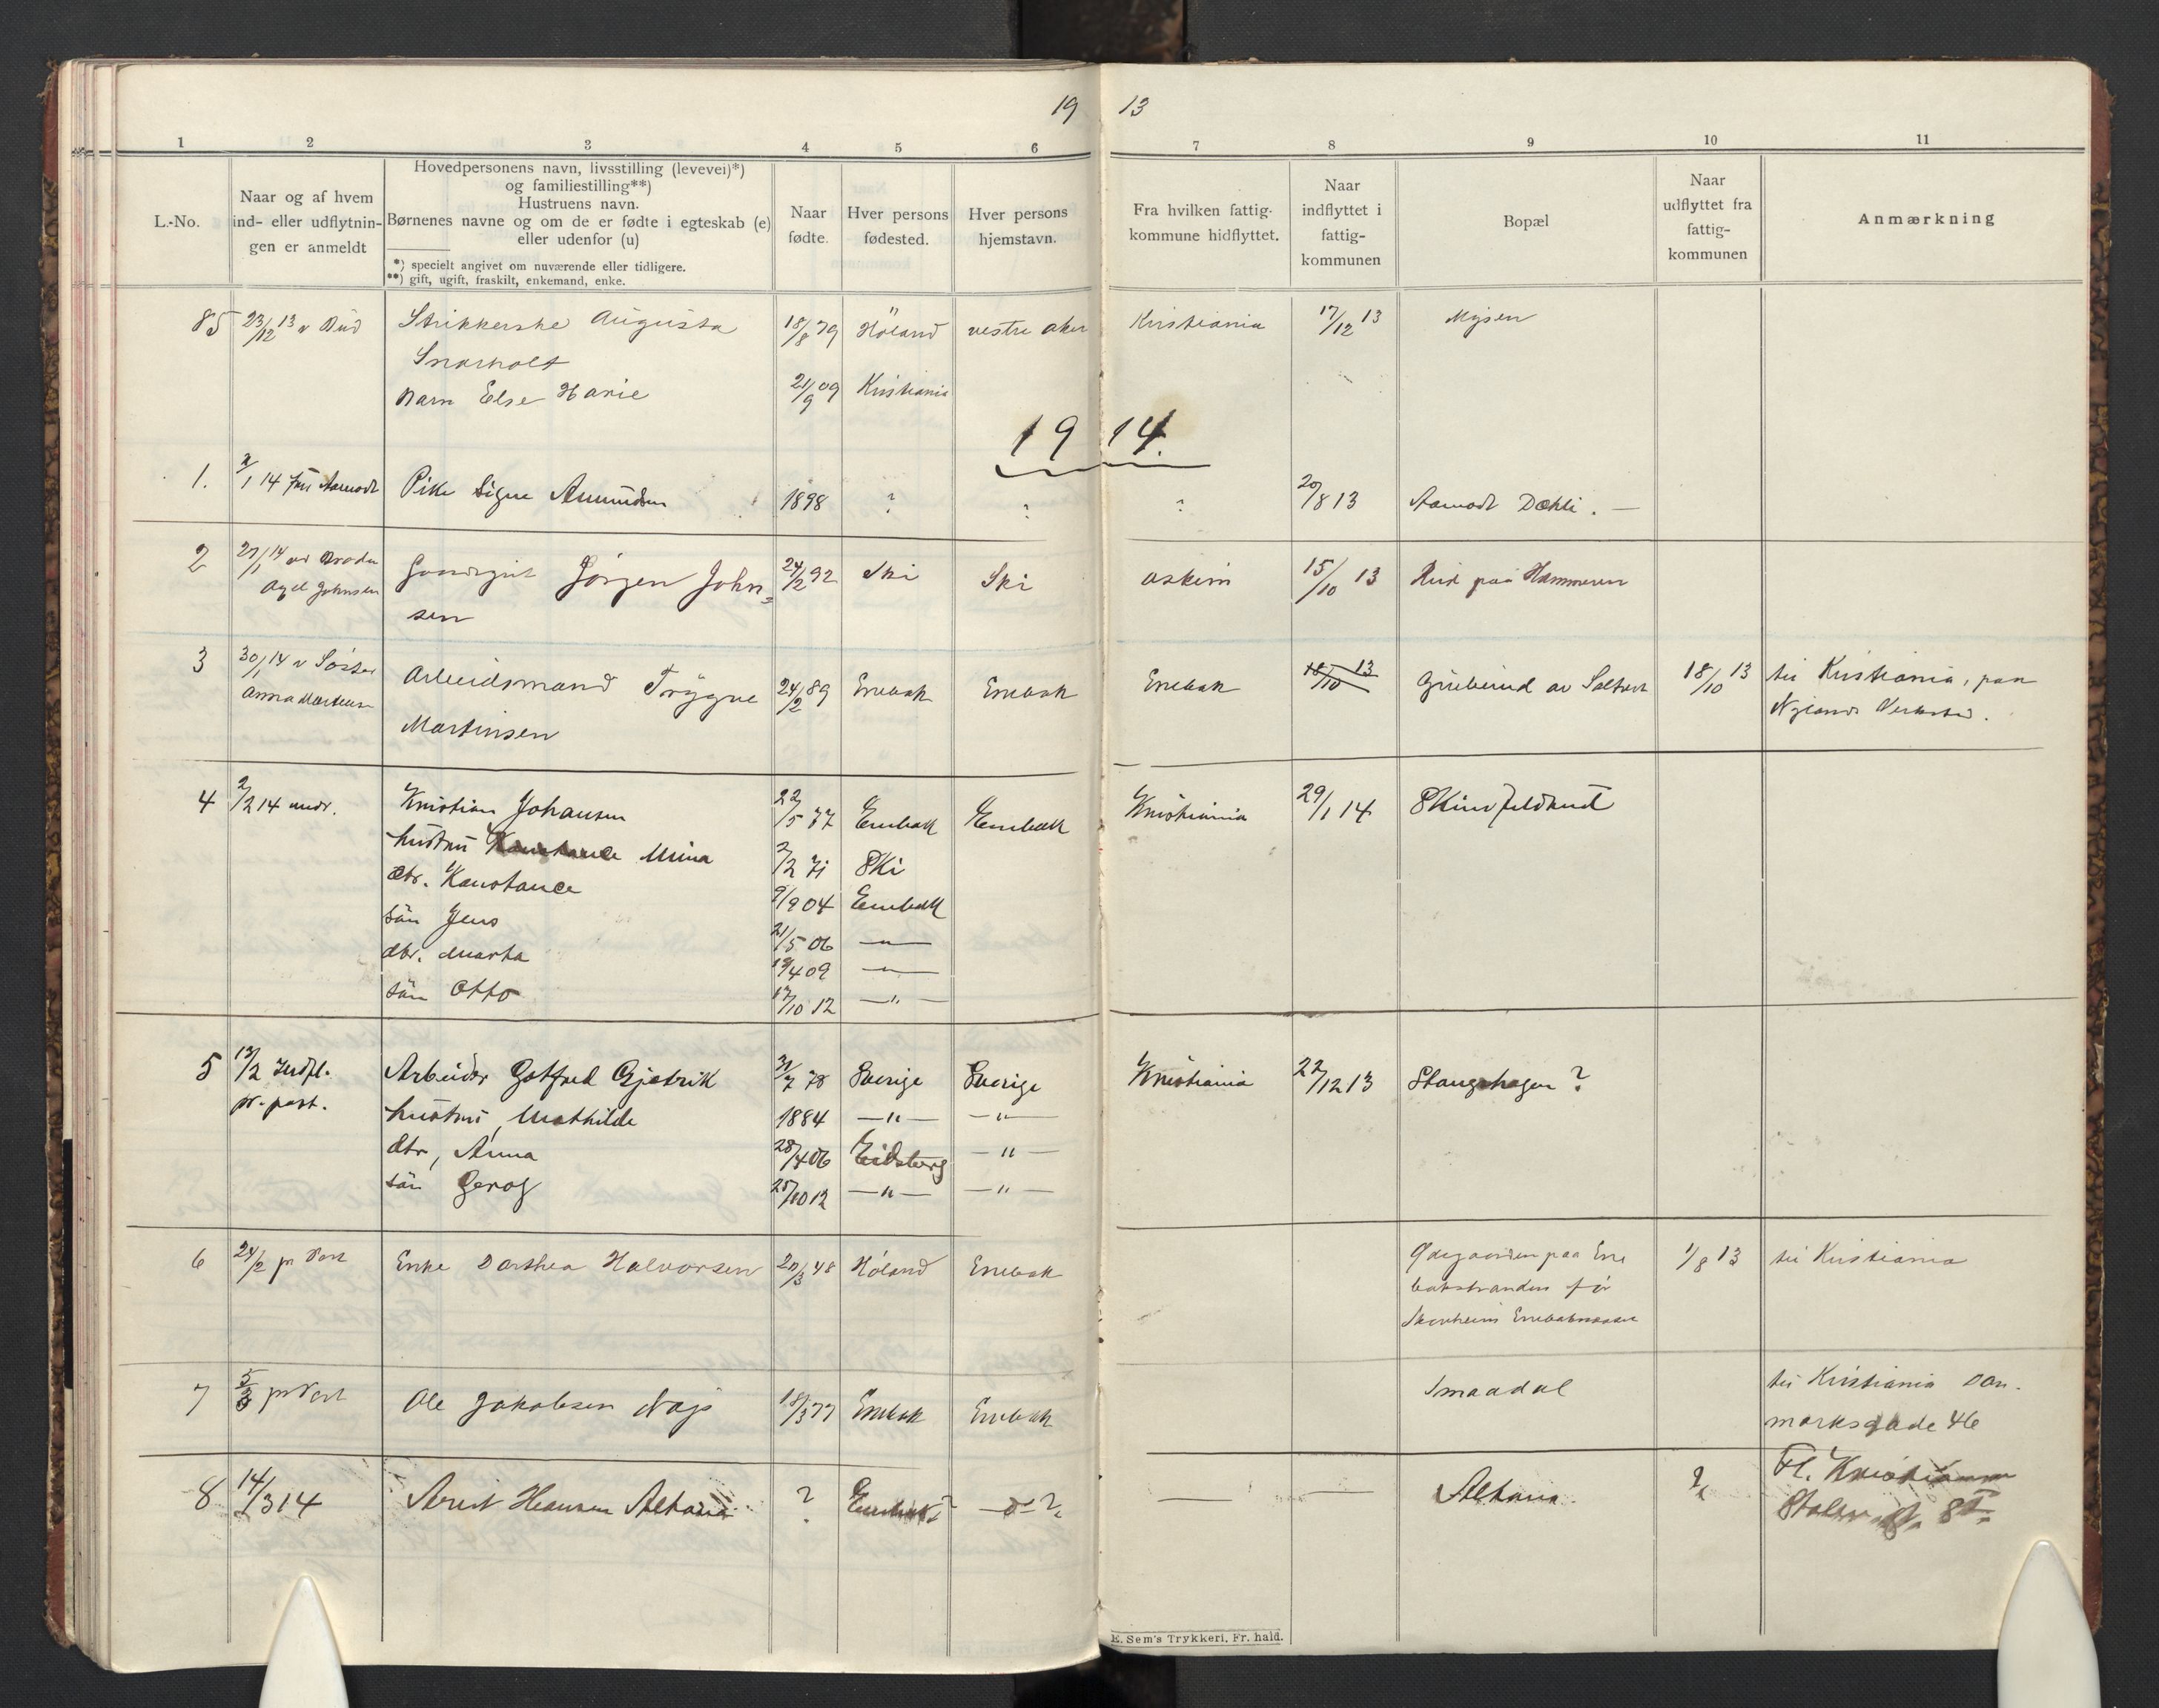 19 13
1 2 3 4 5 6 7 8 9 10 11
L.-No.
Naar og af hvem
ind- eller udflytnin-
gen er anmeldt
Hovedpersonens navn, livsstilling (levevei)*)
og familiestilling**)
Hustruens navn.
Børnenes navne og om de er fødte i egteskab (e)
eller udenfor (u)
*) specielt angivet om nuværende eller tidligere.
**) gift, ugift, fraskilt, enkemand, enke.
Naar
fødte.
Hver persons
fødested.
Hver persons
hjemstavn.
Fra hvilken fattig-
kommune hidflyttet.
Naar
indflyttet i
fattig-
kommunen
Bopæl
Naar
udflyttet fra
fattig-
kommunen
Anmærkning
85 23/12 13 v Bud Strikkerske Augusta 18/8 79 Höland vestre aker Kristiania 17/12 13 Mysen
Snarholt
Barn Else Marie 21/9 09 Kristiania
1914.
1. 2/1 14 Aamodt Pike Signe Amundsen 1898 ? ? ? 20/8 13 Aamodt Dæhli. —
2 27/1 14 av Broder Gaardsgut Jörgen John= 24/2 92 Ski Ski askim 15/10 13 Rud paa Hammeren
Axel Johnsen sen
3 30/1 14 v Söster Arbeidsmand Tryggve 24/2 89 Enebak Enebak Enebak 18/10 13 av 18/10 13 til Kristiania, paa
Anna Martinsen Martinsen Nylands Verksted.
4 2/2 14 undr. Kristian Johansen 22/5 77 Enebak Enebak Kristiania 29/1 14
hustru Mina 2/2 71 Ski
dtr. Konstance 9/9 04 Enebak
sön Jens 21/5 06 — " —
dtr. Marta 19/4 09 — " —
sön Otto 17/10 12 — " —
5 13/2 Indfl. Arbeider Gotfred Gjetrik 31/7 78 Sverige Sverige Kristiania 22/12 13 Stangshagen ?
pr. post. hustru, Mathilde 1884 — " — — " —
dtr, Anna 28/4 06 Eidsberg — " —
sön Gerog 25/10 12 — " — — " —
6 24/2 pr Post Enke Dorthea Halvorsen 20/3 48 Höland Enebak Ødegaarden paa Ene 1/8 13 til Kristiania
bakstranden for
7 5/3 pr Post Ole Jakobsen 18/3 77 Enebak Enebak Smaadal til Kristiania Dan-
marksgade 46
8 14/3 14 Hansen Altona ? Enebak? — d° ? — — Altona. ? Fl. Kristiania